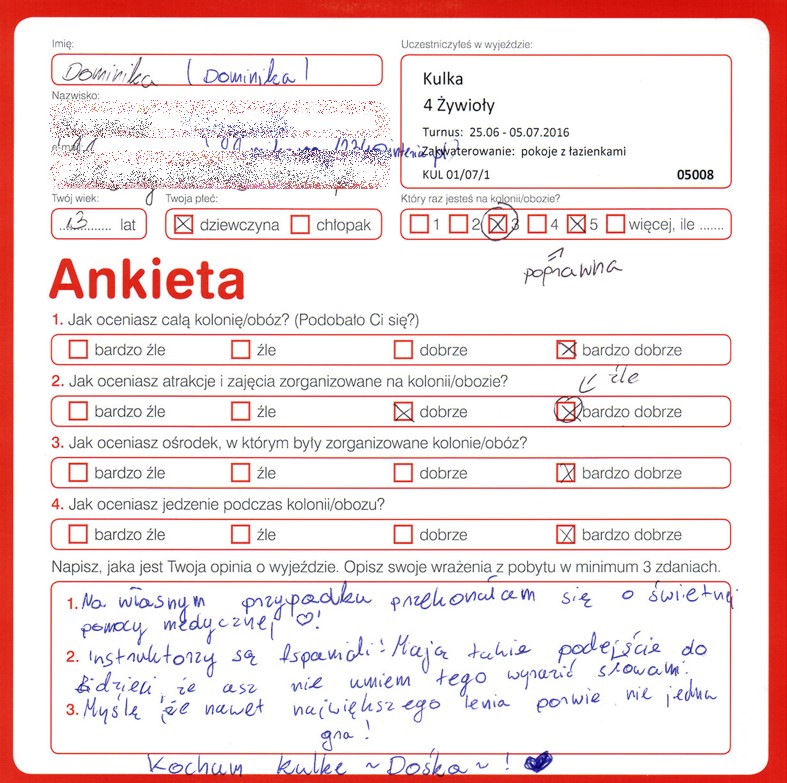 Imię:
Dominika (Dominika)
Uczestniczyłeś w wyjeździe:
Kulka
4 Żywioły
Turnus: 25.06 - 05.07.2016
Zakwaterowanie: pokoje z łazienkami
KUL 01/07/1 05008
Nazwisko:
Twój wiek:
13 lat
Twoja płeć:
dziewczyna chłopak
Który raz jesteś na kolonii/obozie?
1 2 3 4 5 więcej, ile .......
poprawna
Ankieta
1. Jak oceniasz całą kolonię/obóz? (Podobało Ci się?)
bardzo źle źle dobrze bardzo dobrze
2. Jak oceniasz atrakcje i zajęcia zorganizowane na kolonii/obozie?
źle
bardzo źle źle dobrze bardzo dobrze
3. Jak oceniasz ośrodek, w którym były zorganizowane kolonie/obóz?
bardzo źle źle dobrze bardzo dobrze
4. Jak oceniasz jedzenie podczas kolonii/obozu?
bardzo źle źle dobrze bardzo dobrze
Napisz, jaka jest Twoja opinia o wyjeździe. Opisz swoje wrażenia z pobytu w minimum 3 zdaniach.
1. Na własnym przypadku przekonałam się o świetnej
pomocy medycznej ♡!
2. Instruktorzy są wspaniali! Mają takie podejście do
że asz nie umiem tego wyrazić słowami.
3. Myślę że nawet największego lenia porwie nie jedna
gra!
Kocham kulkę ~ Dośka ~ ! ♥